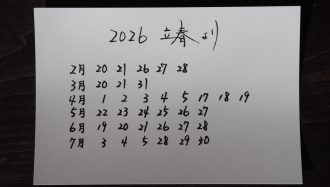 2026 立春より
2月 20 21 26 27 28
3月 20 21 31
4月 1 2 3 4 5 17 18 19
5月 22 23 24 25 26 27
6月 19 20 21 26 27 28
7月 3 4 5 28 29 30